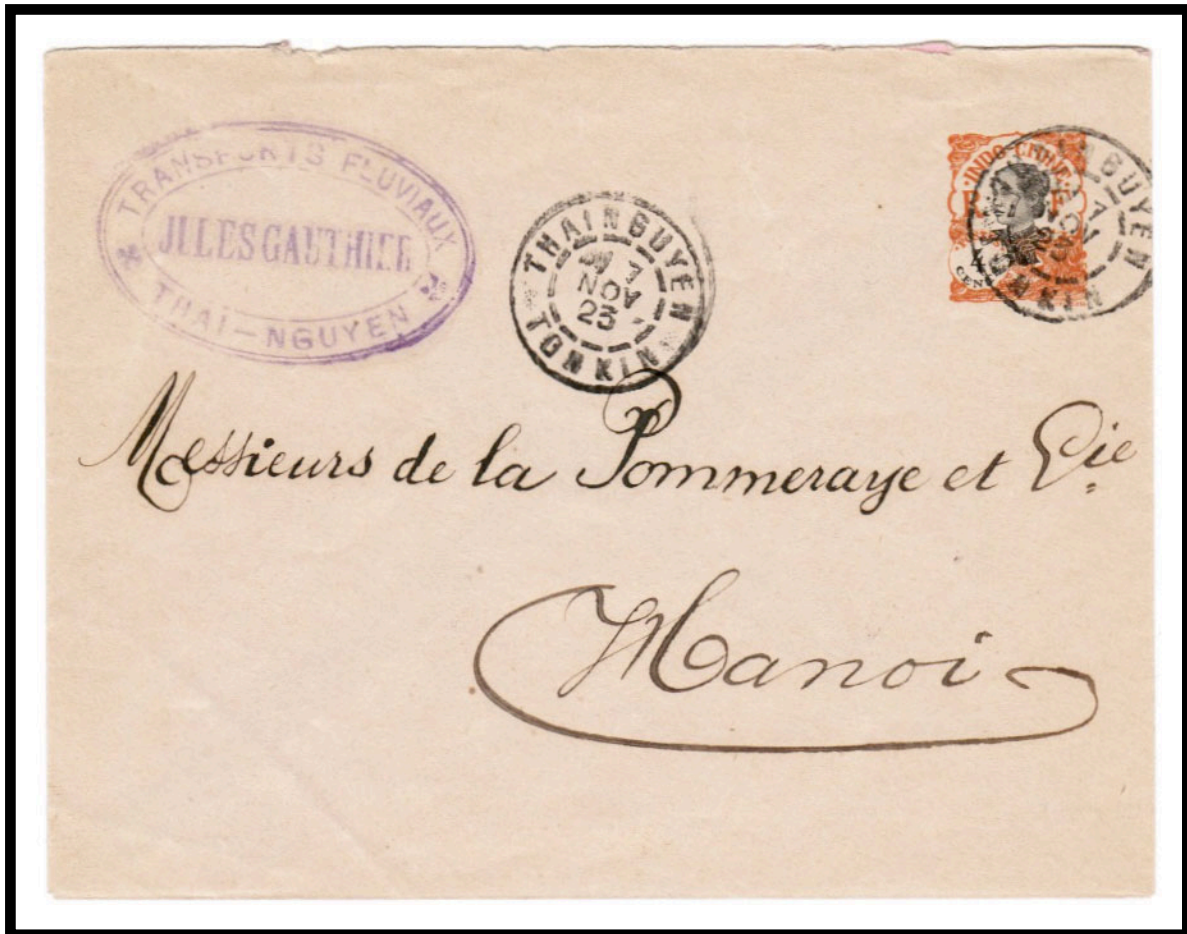 TRANSPORTS FLUVIAUX
JULES GAUTHIER
THAÏ-NGUYEN
THAINGUYEN
7
NOV
23
TONKIN
INDO-CHINE
F
4
CEN
NGUYEN
7
NOV
23
NKIN
Messieurs de la Pommeraye et Cie
Hanoi